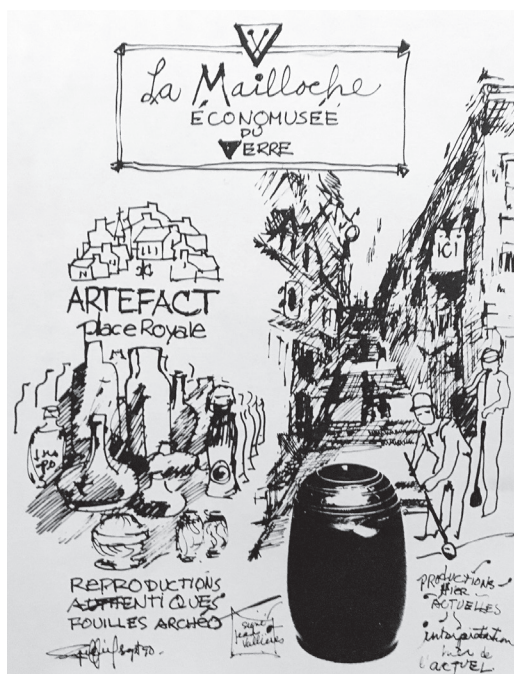 La Mailloche
ÉCONOMUSÉE
DU
VERRE
ICI
ARTEFACT
place Royale
REPRODUCTIONS
AUTHENTIQUES
FOUILLES ARCHÉO
sept 90.
PRODUCTIONS
HIER
ACTUELLES
interprétation
hier de
l'ACTUEL